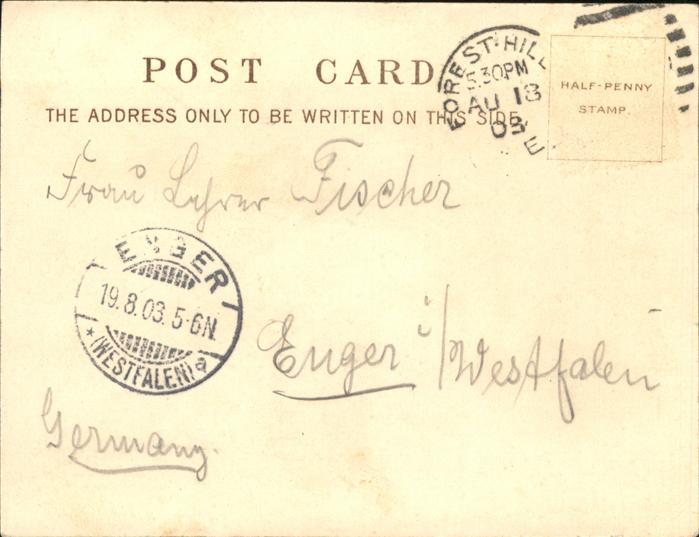 POST CARD
THE ADDRESS ONLY TO BE WRITTEN ON THIS SIDE.
FOREST-HILL
5.30PM
AU 18
03
S.E
HALF-PENNY
STAMP.
Frau Lehrer Fischer
ENGER
19.8.03.5-6N.
* (WESTFALEN) a
Enger i/Westfalen
Germany.